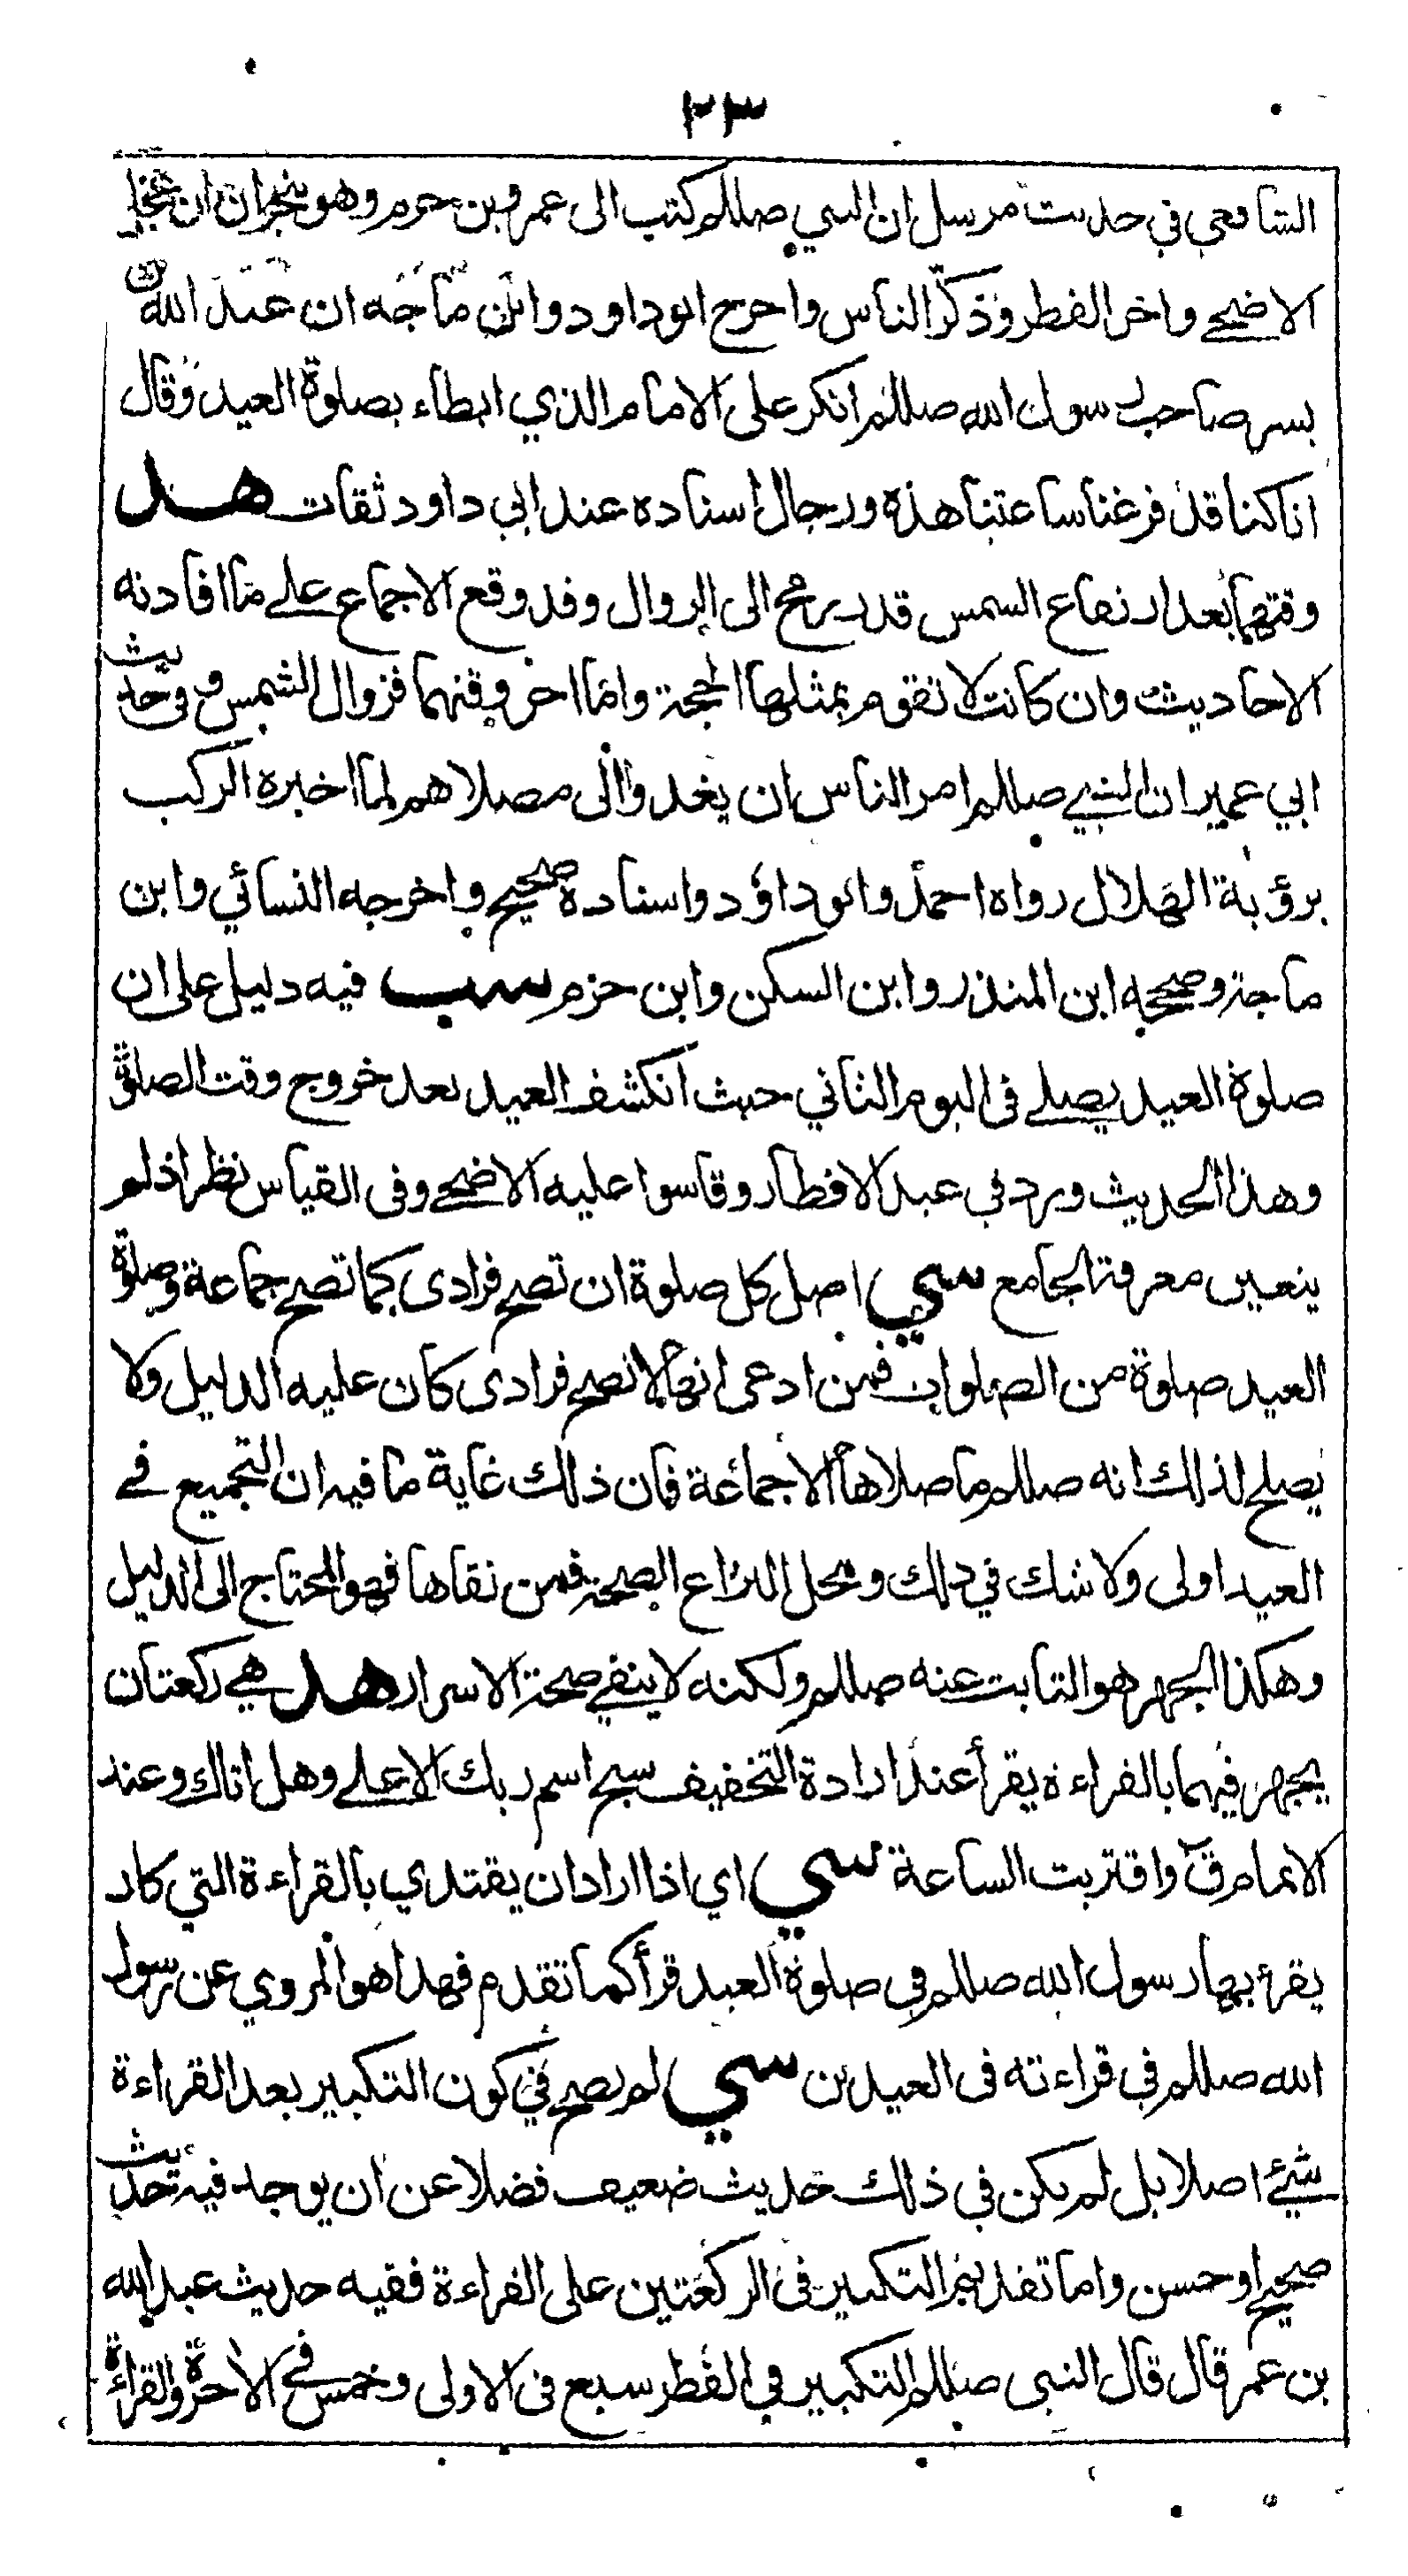 ٣٣
الشافعي في حديث مرسل ان النبي صللم كتب الى عمرو بن حزم وهو بنجران ان عجل
الاضحے واخر الفطر وذكر الناس واخرج ابو داود وابن ماجه ان عبد الله بن
بسر صاحب رسول الله صللم انكر على الامام الذي ابطاء بصلوة العيد وقال
اناكنا قد فرغنا ساعتنا هذه ورجال اسناده عند ابي داود ثقات هــد
وقتهما بعد ارتفاع الشمس قدر رمح الى الزوال وقد وقع الاجماع علے ما افادته
الاحاديث وان كانت لا تقوم بمثلها الحجة واما اخر وقتهما فزوال الشمس وفى حديث
ابي عمير ان النبي صللم امر الناس ان يغدوا الى مصلاهم لما اخبره الركب
برؤية الهلال رواه احمد وابو داؤد واسناده صحيح واخرجه النسائي وابن
ماجة وصححه ابن المنذر وابن السكن وابن حزم سب فيه دليل على ان
صلوة العيد يصلے فى اليوم الثاني حيث انكشف العيد بعد خروج وقت الصلوة
وهذا الحديث ورد في عيد الافطار وقاسوا عليه الاضحے وفى القياس نظر اذ لم
يتعين معرفة الجامع سي اصل كل صلوة ان تصح فرادى كما تصح جماعة وصلوة
العيد صلوة من الصلوات فمن ادعى انها لا تصح فرادى كان عليه الدليل ولا
يصلح لذلك انه صللم ما صلاها الا جماعة فان ذلك غاية ما فيه ان التجميع فے
العيد اولى ولا شك في ذلك ومحل النزاع الصحة فمن نفاها فهو المحتاج الى الدليل
وهكذا الجهر هو الثابت عنه صللم ولكنه لا ينفے صحة الاسرار هــد هے ركعتان
يجهر فيهما بالقراءة يقرأ عند ارادة التخفيف سبح اسم ربك الاعلے وهل اتاك وعند
الاتمام قٓ واقتربت الساعة سي اي اذا اراد ان يقتدي بالقراءة التي كان
يقرء بها رسول الله صللم في صلوة العيد قرأ كما تقدم فهذا هو المروي عن رسول
الله صللم في قراءته فى العيدين سي لم يصح في كون التكبير بعد القراءة
شئے اصلا بل لم يكن في ذلك حديث ضعيف فضلا عن ان يوجد فيه حديث
صحيح او حسن واما تقديم التكبير في الركعتين على القراءة ففيه حديث عبد الله
بن عمر قال قال النبى صللم التكبير في الفطر سبع فى الاولى وخمس فے الاخرة والقراءة